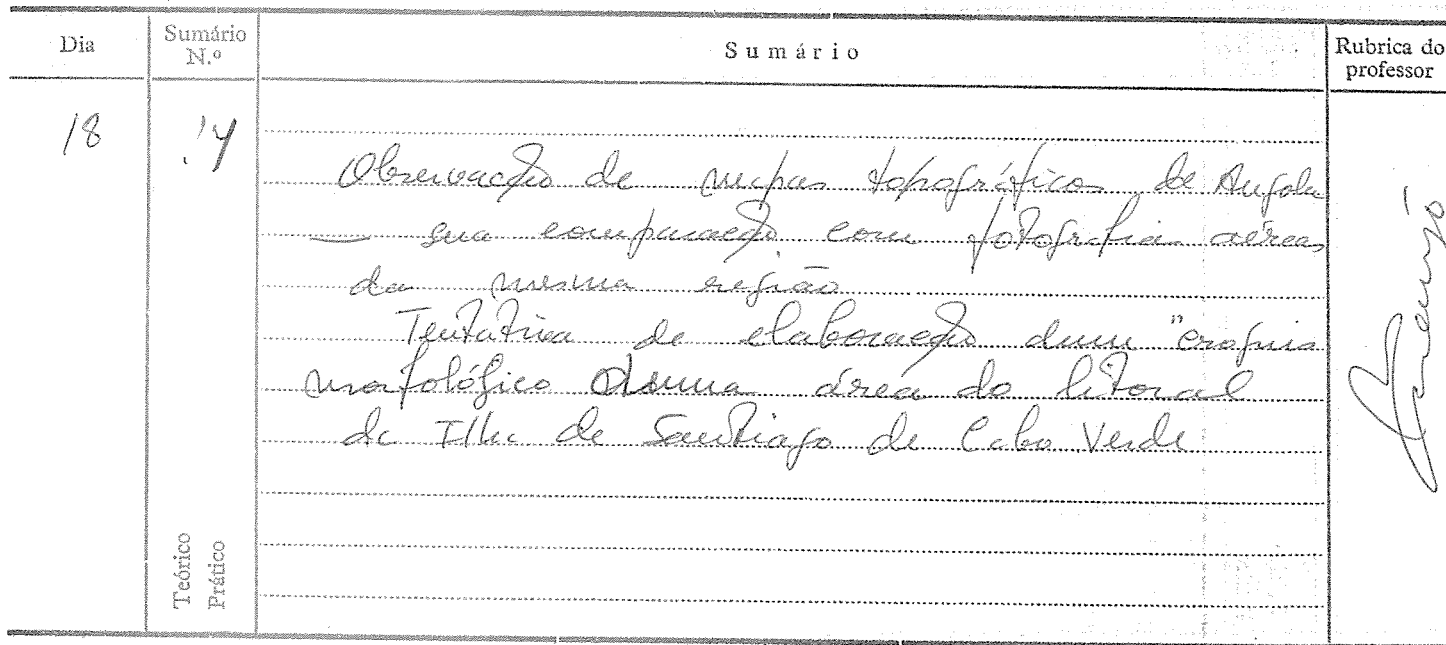 Dia
Sumário N.º
Sumário
Rubrica do professor
18
14
Observação de mapas topográficos de Angola
— sua comparação com fotografias aéreas
da mesma região
Tentativa de elaboração dum "croquis
morfológico duma área do litoral
da Ilha de Santiago de Cabo Verde
Teórico
Prático